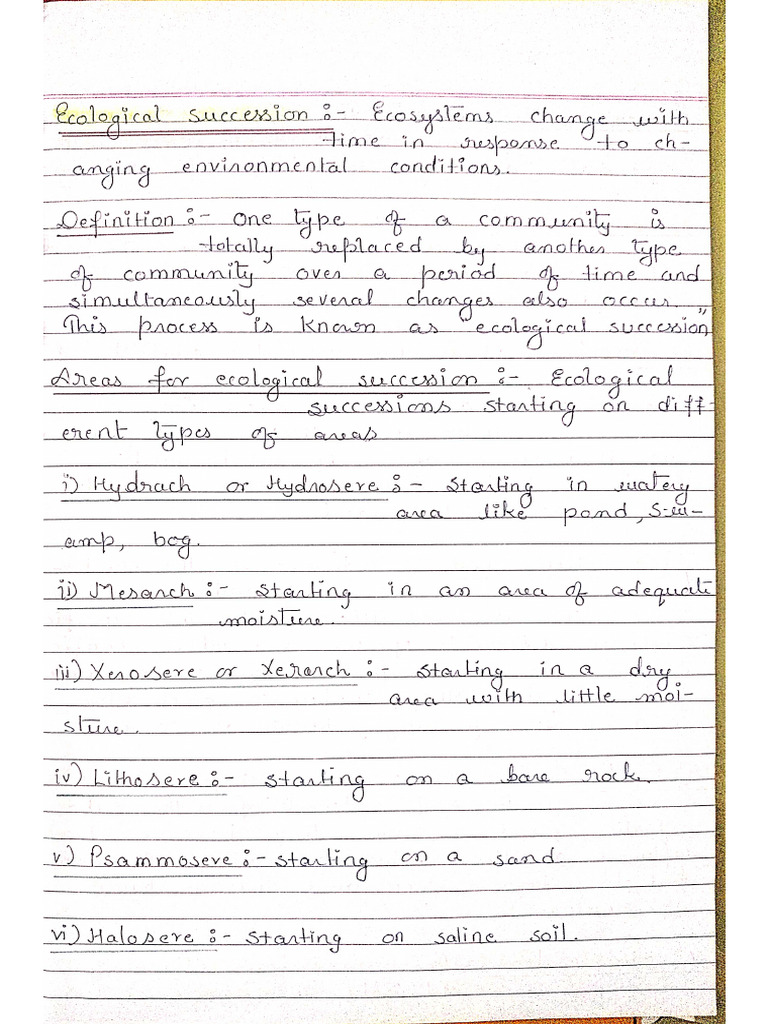 Ecological succession :- Ecosystems change with
time in response to ch-
anging environmental conditions.
Definition :- One type of a community is
totally replaced by another type
of community over a period of time and
simultaneously several changes also occur.
This process is known as "ecological succession"
Areas for ecological succession :- Ecological
successions starting on diff-
erent types of areas
i) Hydrach or Hydrosere :- Starting in watery
area like pond, sw-
amp, bog.
ii) Mesarch :- Starting in an area of adequate
moisture.
iii) Xerosere or Xerarch :- Starting in a dry
area with little moi-
sture.
iv) Lithosere :- starting on a bare rock.
v) Psammosere :- starting on a sand
vi) Halosere :- Starting on saline soil.